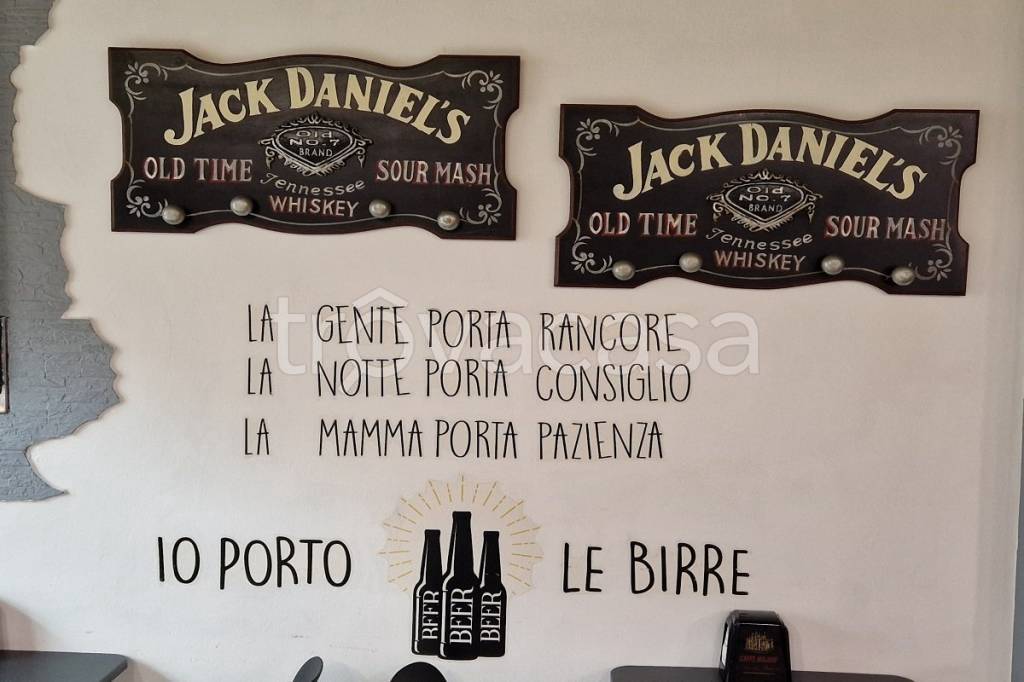 JACK DANIEL'S
Old
NO. 7
BRAND
OLD TIME
SOUR MASH
Tennessee
WHISKEY
JACK DANIEL'S
Old
NO. 7
BRAND
OLD TIME
SOUR MASH
Tennessee
WHISKEY
trovacasa
LA GENTE PORTA RANCORE
LA NOTTE PORTA CONSIGLIO
LA MAMMA PORTA PAZIENZA
IO PORTO LE BIRRE
BEER BEER BEER